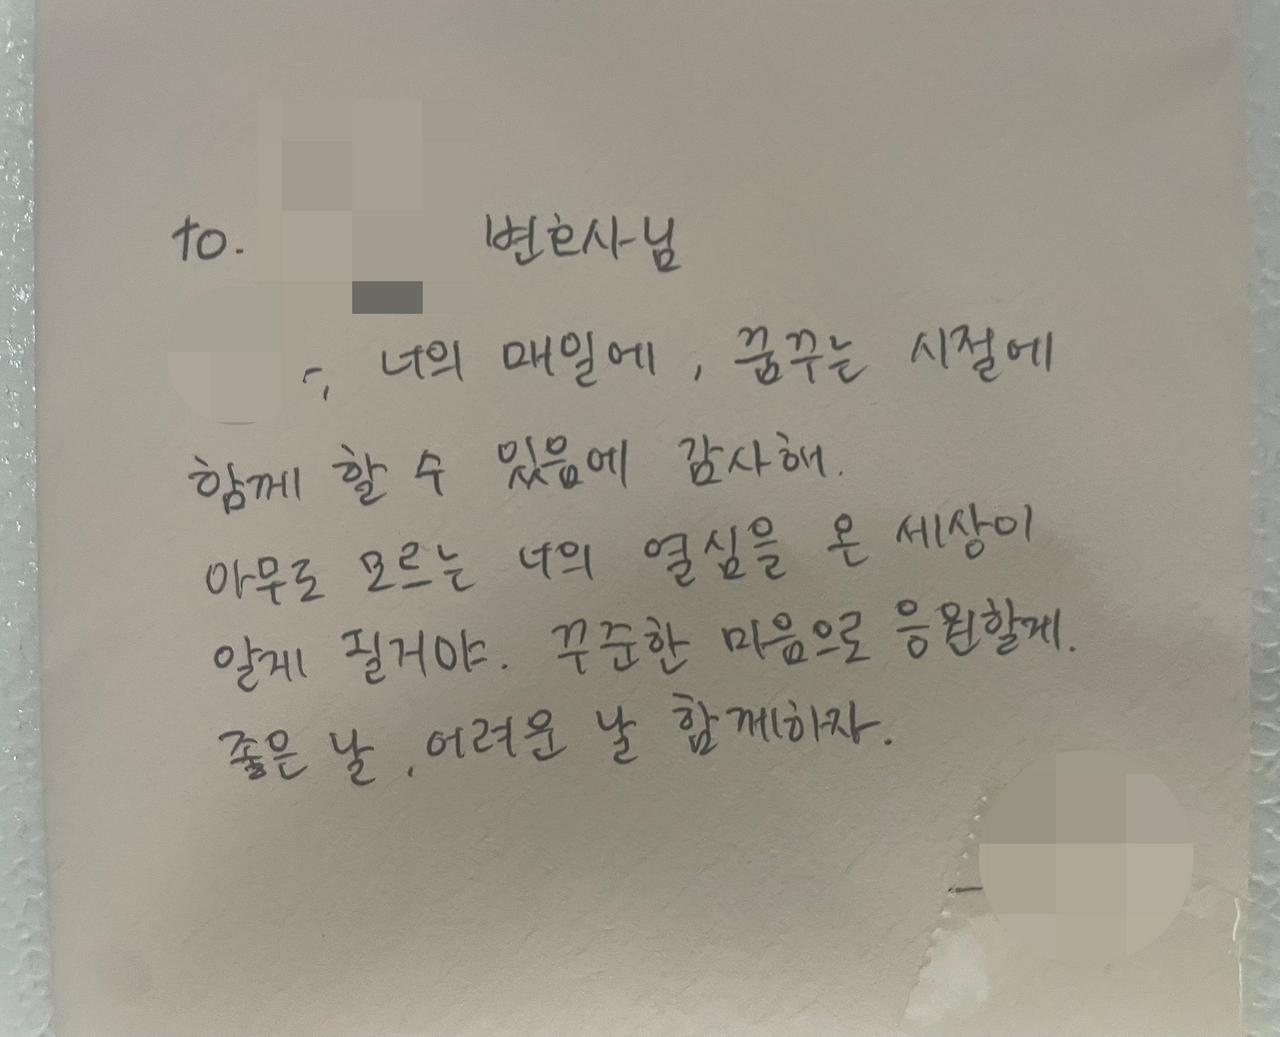 to. 변호사님
, 너의 매일에, 꿈꾸는 시절에
함께 할 수 있음에 감사해.
아무도 모르는 너의 열심을 온 세상이
알게 될거야. 꾸준한 마음으로 응원할게.
좋은 날, 어려운 날 함께하자.